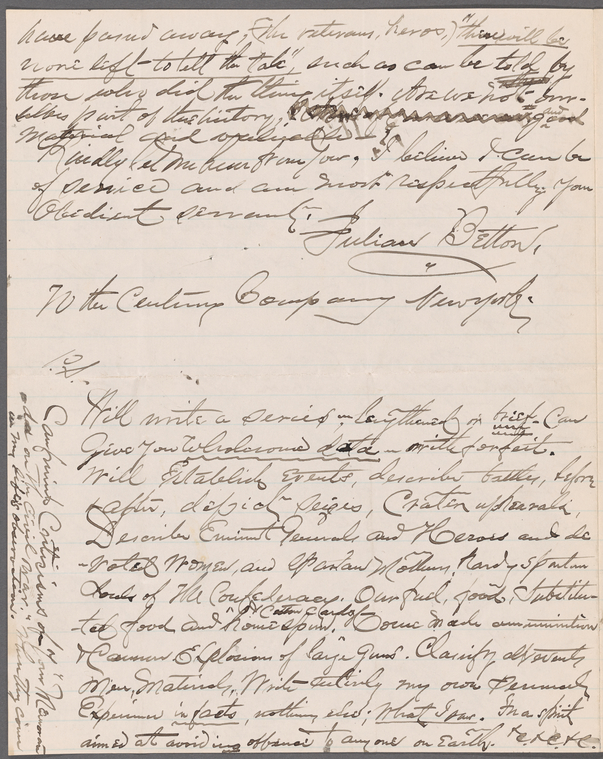 have passed away, (the veterans, heros,) "there will be
none left to tell the tale", such as can be told by
those who did the thing itself. Are we not our-
selves part of the history, and good
material and available -
Kindly let me hear from you. I believe I can be
of service and am most respectfully your
Obedient servant.
Julian Betton.
To the Century Company New York.
P.S.
Will write a series, lengthened or brief - Can
give you wholesome data - with
Will Establish Events, describe battles, before
& after, depict seiges, Crater upheavals,
Describe Eminent Generals and Heroes and de
-voted Women, and Spartan Mothers, hardy Spartan
of The Confederacy. Our fuel, food, substitu-
ted food and "homespun", & Cotton Cards
Home made ammunition
& Cannon Explosions of large guns. Classify all events
Men, Material, Write entirely my own Personal
Experience in facts, nothing else; what I saw. In a spirit
aimed at avoiding offence to any one on Earth. &c. &c. &c.
Confined
old on "The Civil War."
in my observation.